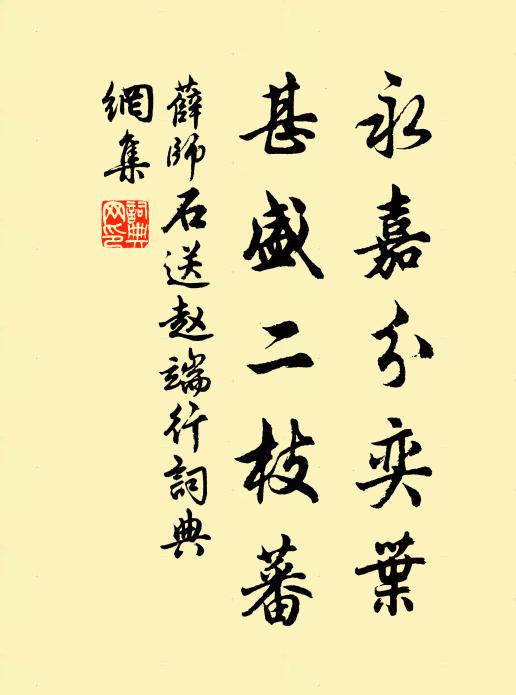 永嘉分奕葉
甚盛二枝蕃
薛師石送赵端行詞典
網集
詞典
网印